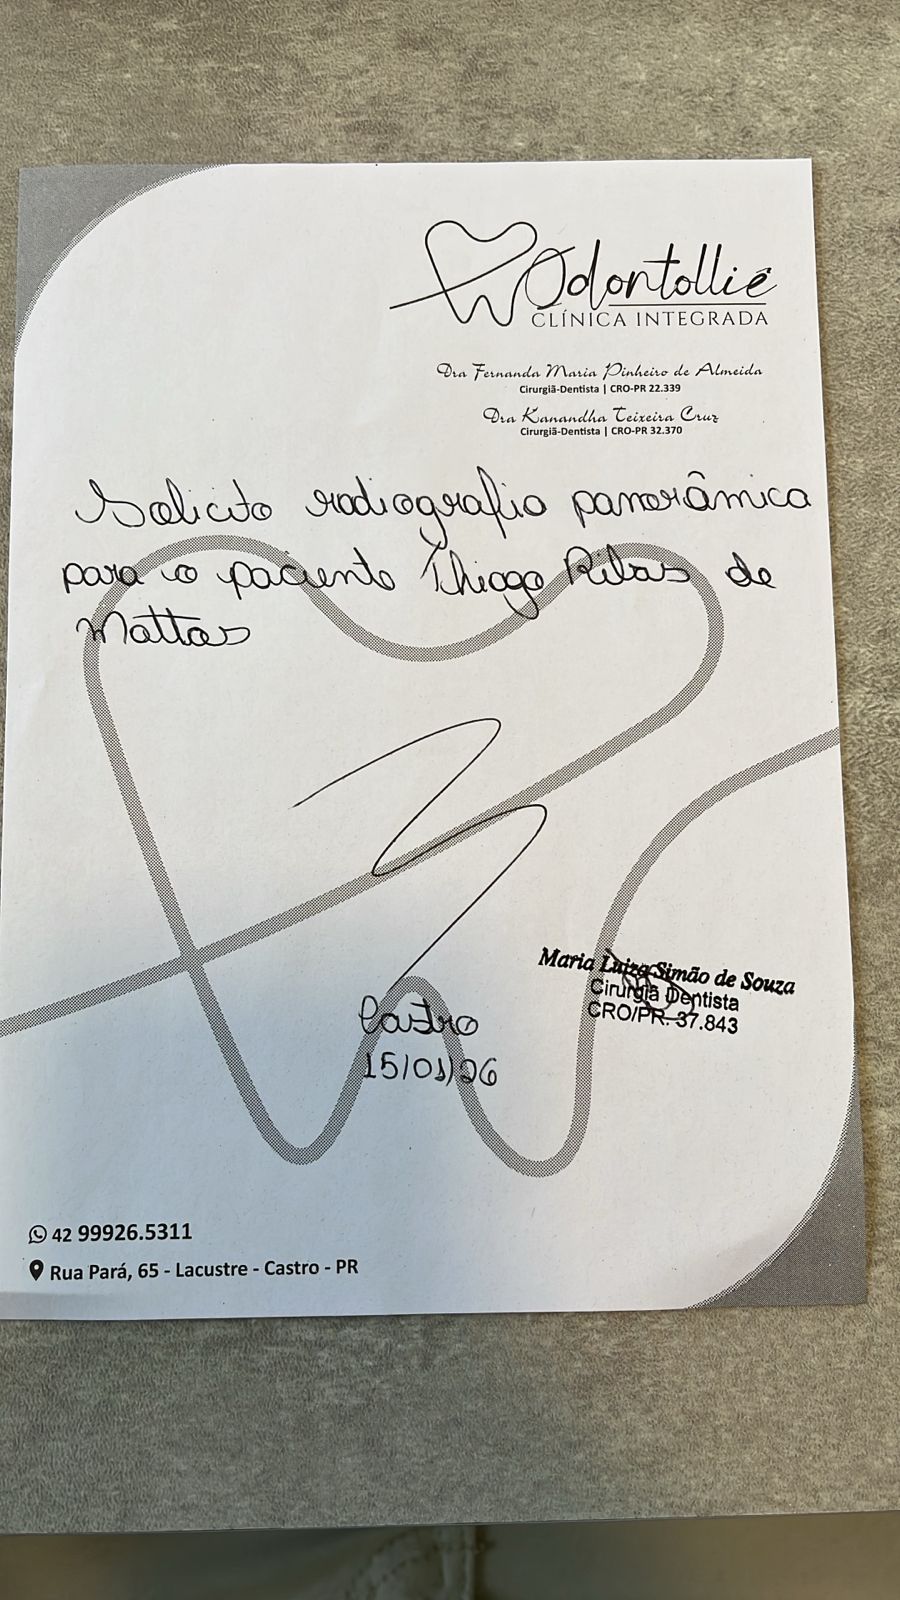 Odontolliê
CLÍNICA INTEGRADA
Dra Fernanda Maria Pinheiro de Almeida
Cirurgiã-Dentista | CRO-PR 22.339
Dra Kanandha Teixeira Cruz
Cirurgiã-Dentista | CRO-PR 32.370
Solicito radiografia panorâmica
para o paciente Thiago Ribas de
Mattos
Maria Luiza Simão de Souza
Cirurgiã Dentista
CRO/PR. 37.843
Castro
15/01/26
42 99926.5311
Rua Pará, 65 - Lacustre - Castro - PR